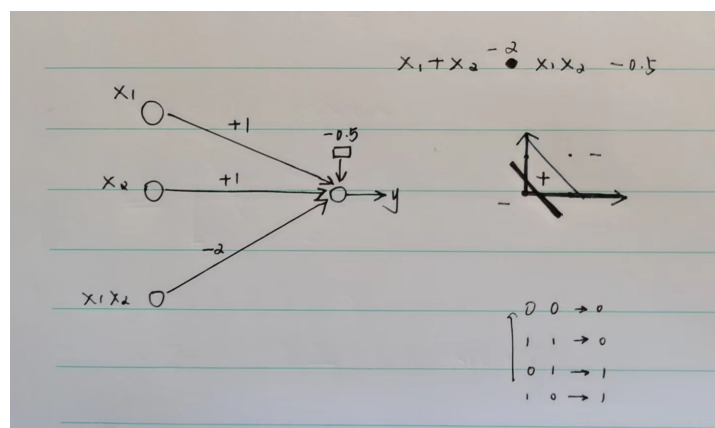 x₁ + x₂ -2 • x₁x₂ -0.5
x₁
+1
-0.5
x₂
+1
y
-2
x₁x₂
· -
+
-
0 0 → 0
1 1 → 0
0 1 → 1
1 0 → 1